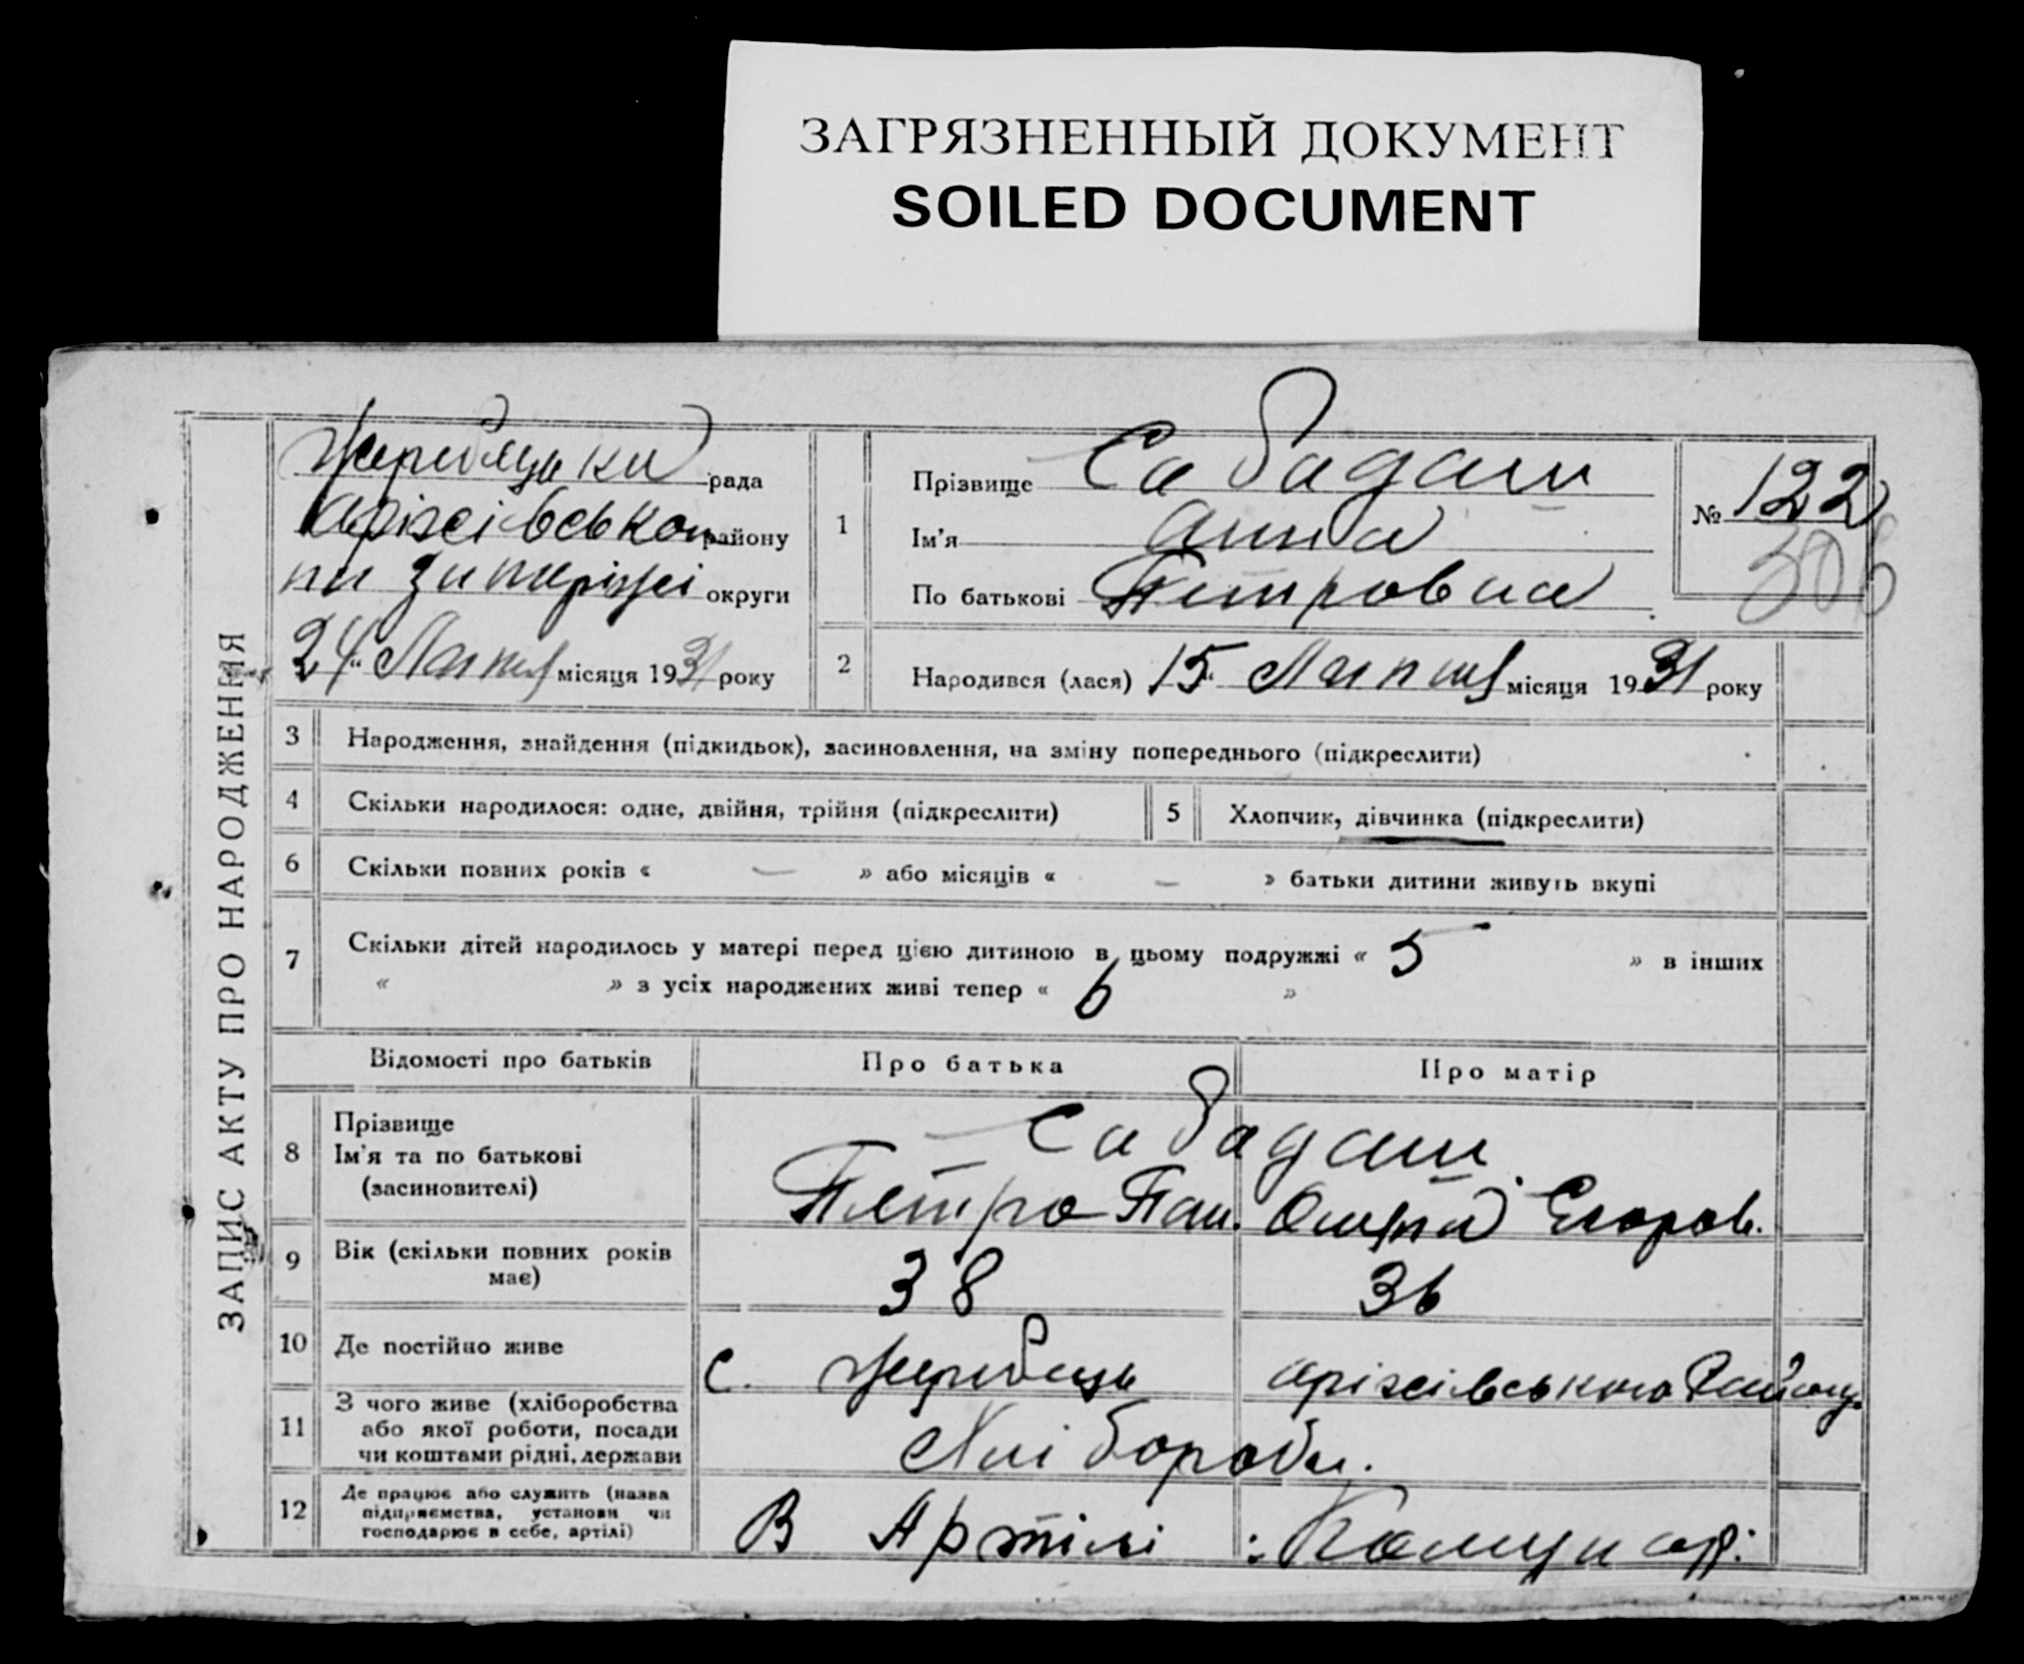 ЗАГРЯЗНЕННЫЙ ДОКУМЕНТ
SOILED DOCUMENT
ЗАПИС АКТУ ПРО НАРОДЖЕННЯ
рада
району
округи
24 " Липня місяця 1931 року
1
Прізвище Сабадаш
Ім'я Анна
По батькові Петровна
№ 122
306
2
Народився (лася) 15 " Липня місяця 1931 року
3 Народження, знайдення (підкидьок), засиновлення, на зміну попереднього (підкреслити)
4 Скільки народилося: одне, двійня, трійня (підкреслити)
5 Хлопчик, дівчинка (підкреслити)
6 Скільки повних років « — » або місяців « — » батьки дитини живуть вкупі
7 Скільки дітей народилось у матері перед цією дитиною в цьому подружжі « 5 » в інших
« » з усіх народжених живі тепер « 6 »
Відомості про батьків Про батька Про матір
8 Прізвище
Ім'я та по батькові
(засиновителі)
Сабадаш
Петро Пан. Егоров.
9 Вік (скільки повних років
має)
38 36
10 Де постійно живе
с. Жеребець оріхівського Району
11 З чого живе (хліборобства
або якої роботи, посади
чи коштами рідні, держави
Хлібороби.
12 Де працює або служить (назва
підприємства, установи чи
господарює в себе, артілі)
В Артілі : Комунар: